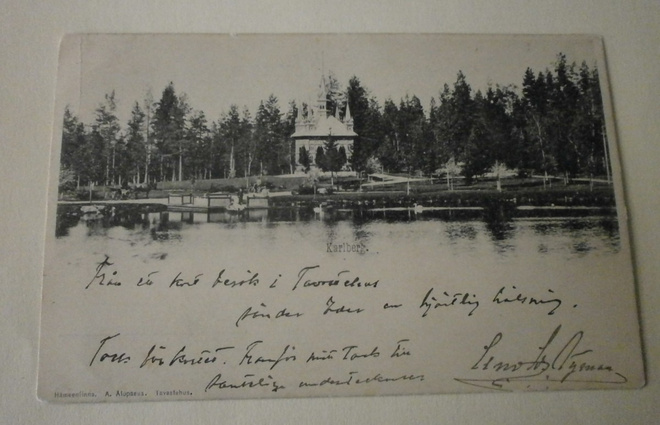 Karlberg.
Från ett kort besök i Tavastehus
sänder Eder en hjärtlig hälsning.
Tack för kortet. Framför mitt Tack till
samtlige undertecknare
Hämeenlinna. A. Alopaeus. Tavastehus.